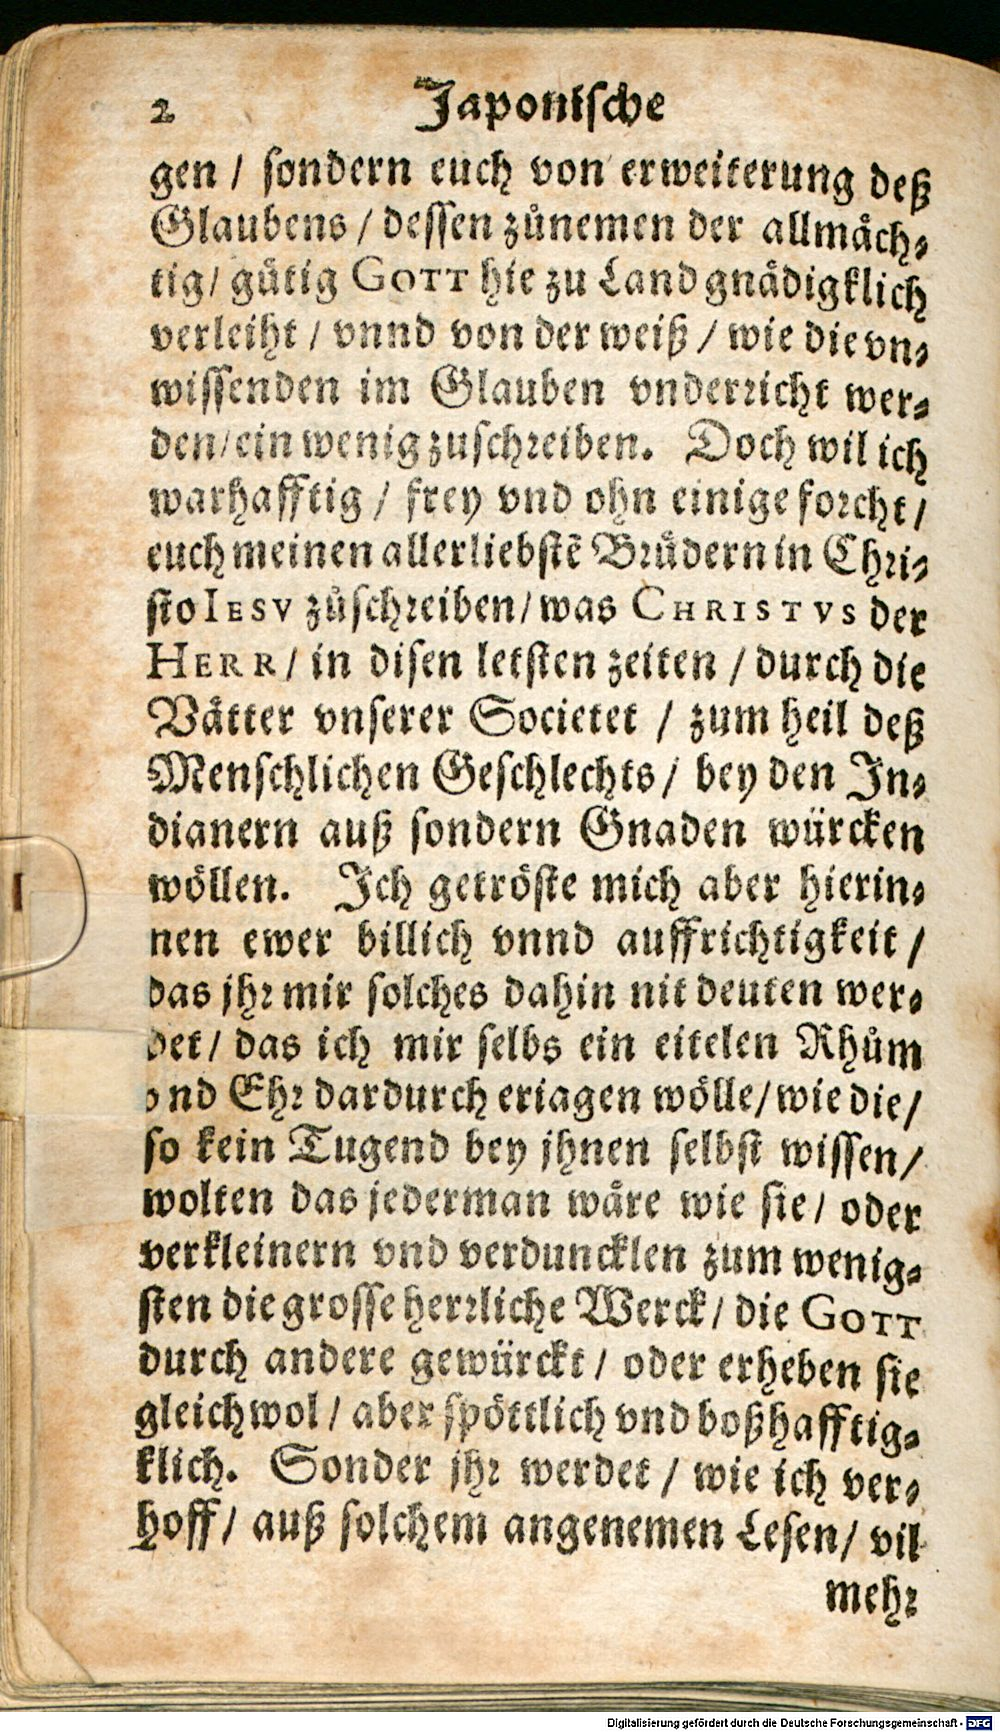 2 Japonische
gen / sondern euch von erweiterung deß
Glaubens / dessen zůnemen der allmåch-
tig / gůtig GOTT hie zu Land gnådigklich
verleiht / vnnd von der weiß / wie die vn-
wissenden im Glauben vnderricht wer-
den / ein wenig zuschreiben. Doch wil ich
warhafftig / frey vnd ohn einige forcht /
euch meinen allerliebstē Brůdern in Chri-
sto IESV zůschreiben / was CHRISTVS der
HERR / in disen letsten zeiten / durch die
Våtter vnserer Societet / zum heil deß
Menschlichen Geschlechts / bey den In-
dianern auß sondern Gnaden würcken
wöllen. Ich getröste mich aber hierin-
nen ewer billich vnnd auffrichtigkeit /
das jhr mir solches dahin nit deuten wer-
det / das ich mir selbs ein eitelen Rhům
vnd Ehr dardurch eriagen wölle / wie die /
so kein Tugend bey jhnen selbst wissen /
wolten das jederman wåre wie sie / oder
verkleinern vnd verduncklen zum wenig-
sten die grosse herrliche Werck / die GOTT
durch andere gewürckt / oder erheben sie
gleichwol / aber spöttlich vnd boßhafftig-
klich. Sonder jhr werdet / wie ich ver-
hoff / auß solchem angenemen Lesen / vil
mehr
Digitalisierung gefördert durch die Deutsche Forschungsgemeinschaft - DFG